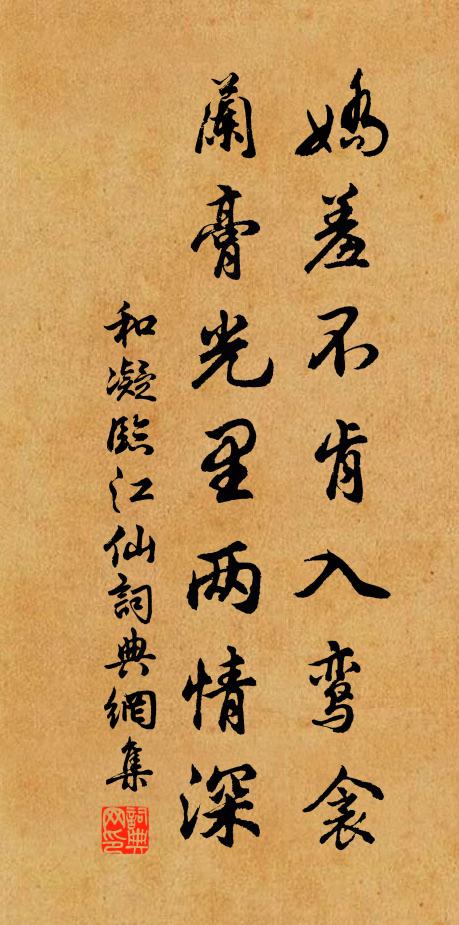 娇羞不肯入鸾衾
蘭膏光里两情深
和凝臨江仙詞典網集
詞典网印